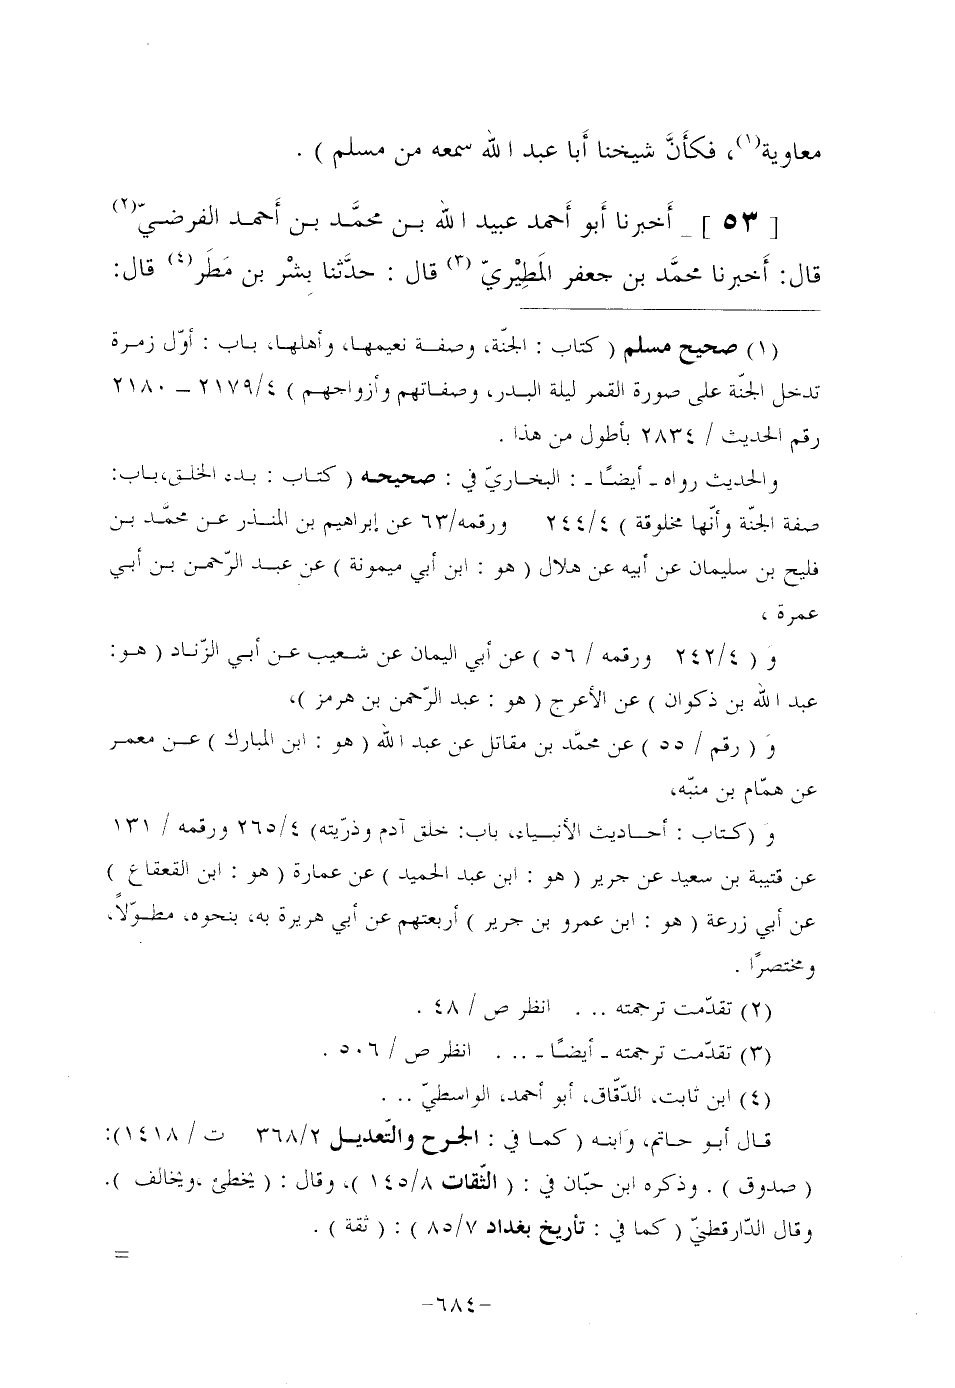 معاوية(١)، فكأَنَّ شيخنا أَبا عبد الله سمعه من مسلم ) .
[ ٥٣ ] _ أَخبرنا أَبو أَحمد عبيد الله بـن محمَّد بـن أَحمـد الفرضـيّ(٢)
قال: أَخبرنا محمَّد بن جعفر المَطِيْريّ (٣) قال : حدَّثنا بشْر بن مَطَر(٤) قال:
(١) صحيح مسلم ( كتاب : الجنّة، وصفـة نعيمهـا، وأهلهـا، بـاب : أوّل زمـرة
تدخل الجنّة على صورة القمر ليلة البـدر، وصفـاتهم وأزواجهـم ) ٢١٧٩/٤ – ٢١٨٠
رقم الحديث / ٢٨٣٤ بأطول من هذا .
والحديث رواه ـ أيضًا ـ : البخـاريّ في : صحيحـه ( كتـاب : بـدء الخلـق،بـاب:
صفة الجنّة وأنّها مخلوقة ) ٢٤٤/٤ ورقمه/٦٣ عن إبراهيم بن المنـذر عـن محمَّـد بـن
فليح بن سليمان عن أبيه عن هلال ( هو : ابن أبي ميمونة ) عن عبـد الرّحمـن بـن أبـي
عمرة ،
وَ ( ٢٤٢/٤ ورقمه / ٥٦ ) عن أبي اليمان عن شـعيب عـن أبـي الزّنـاد ( هـو:
عبد الله بن ذكوان ) عن الأعرج ( هو : عبد الرّحمن بن هرمز )،
وَ ( رقم / ٥٥ ) عن محمَّد بن مقاتل عن عبد الله ( هو : ابن المبارك ) عـن معمـر
عن همّام بن منبّه،
وَ (كتاب : أحـاديث الأنبـياء، باب: خلق آدم وذرّيته) ٢٦٥/٤ ورقمه / ١٣١
عن قتيبة بن سعيد عن جرير ( هو : ابن عبد الحميد ) عن عمارة ( هو : ابن القعقاع )
عن أبي زرعة ( هو : ابن عمرو بن جرير ) أربعتهم عن أبي هريرة به، بنحوه، مطـوّلاً،
ومختصرًا .
(٢) تقدّمت ترجمته .. . انظر ص / ٤٨ .
(٣) تقدّمت ترجمته ـ أيضًـا ـ .. . انظر ص / ٥٠٦ .
(٤) ابن ثابت، الدّقّاق، أبو أحمد، الواسطيّ .. .
قـال أبـو حـاتم، وَابنـه ( كمـا في : الجرح والتّعديـل ٣٦٨/٢ ت / ١٤١٨):
( صدوق ) . وذكره ابن حبّان في : ( الثّقات ١٤٥/٨ )، وقال : ( يخطئ ،ويخالف ).
وقال الدّارقطنيّ ( كما في : تأريخ بغداد ٨٥/٧ ) : ( ثقة ) .
=
–٦٨٤–